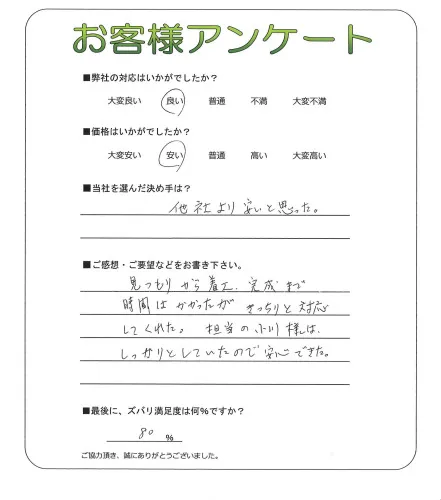 お客様アンケート
■弊社の対応はいかがでしたか？
大変良い 良い 普通 不満 大変不満
■価格はいかがでしたか？
大変安い 安い 普通 高い 大変高い
■当社を選んだ決め手は？
他社より安いと思った。
■ご感想・ご要望などをお書き下さい。
見つもりから着工、完成まで
時間はかかったが きっちりと対応
してくれた。 担当の小川様は、
しっかりとしていたので安心できた。
■最後に、ズバリ満足度は何％ですか？
80 ％
ご協力頂き、誠にありがとうございました。